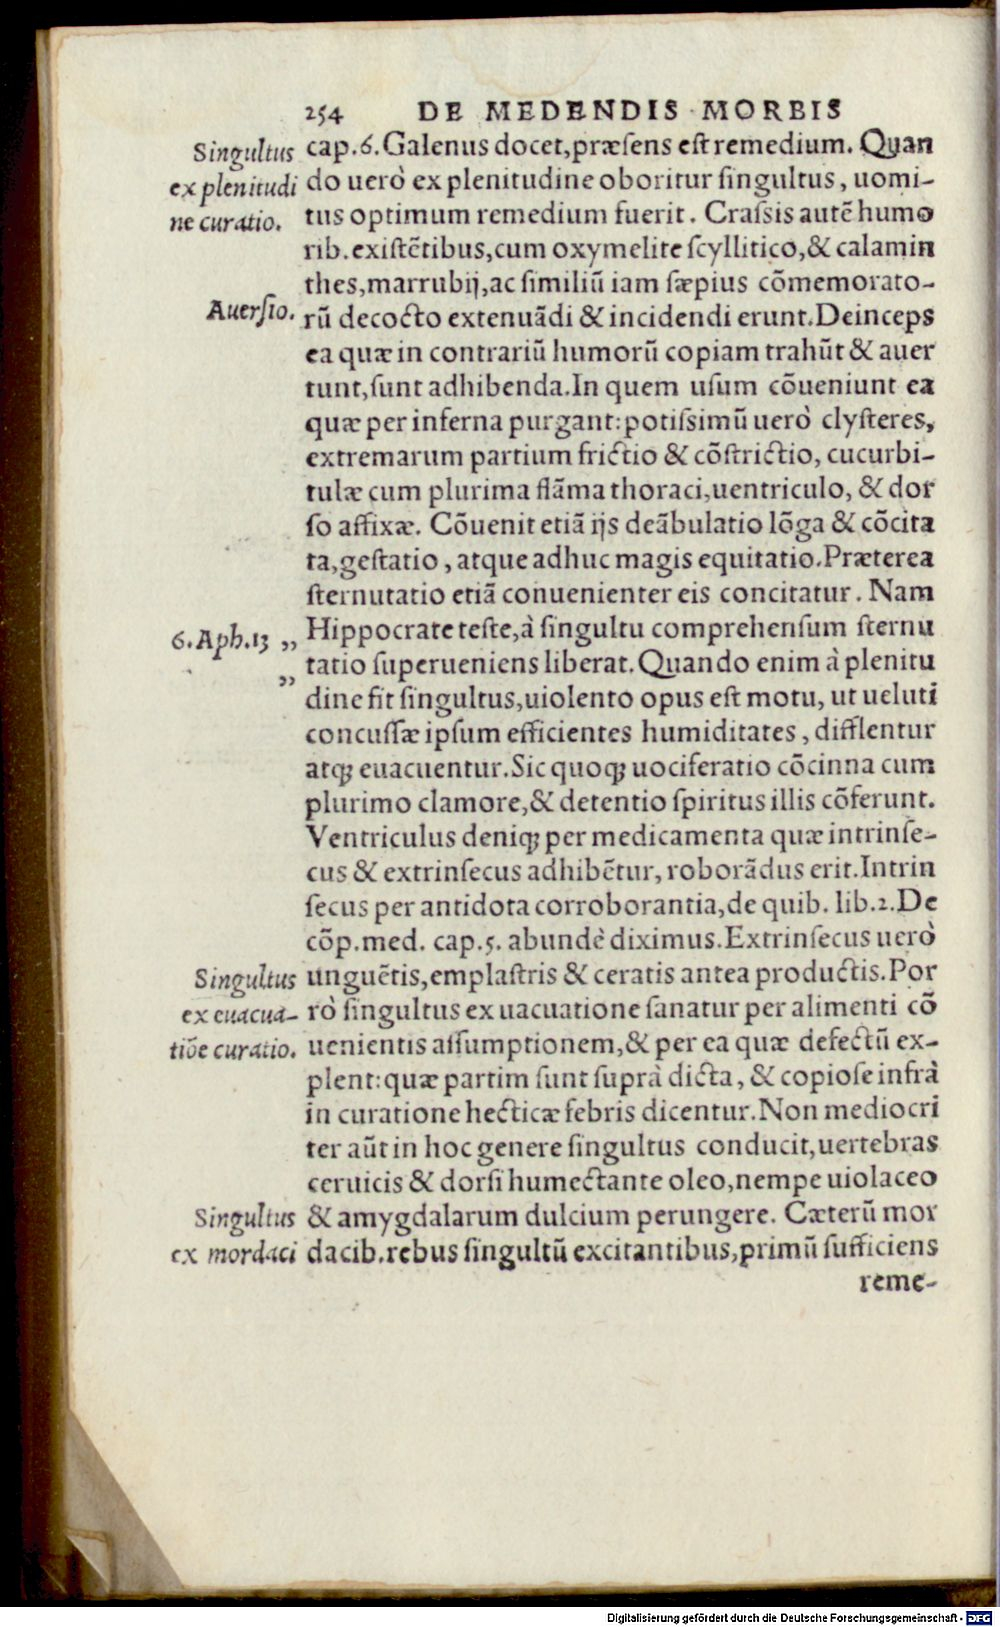 254 DE MEDENDIS MORBIS
Singultus
ex plenitudi
ne curatio.
cap.6.Galenus docet,præsens est remedium. Quan
do uerò ex plenitudine oboritur singultus, uomi-
tus optimum remedium fuerit. Crassis autẽ humo
rib.existẽtibus,cum oxymelite scyllitico,& calamin
thes,marrubij,ac similiũ iam sæpius cõmemorato-
Auersio.
rũ decocto extenuãdi & incidendi erunt.Deinceps
ea quæ in contrariũ humorũ copiam trahũt & auer
tunt,sunt adhibenda.In quem usum cõueniunt ea
quæ per inferna purgant:potissimũ uerò clysteres,
extremarum partium frictio & cõstrictio, cucurbi-
tulæ cum plurima flãma thoraci,uentriculo, & dor
so affixæ. Cõuenit etiã ijs deãbulatio lõga & cõcita
ta,gestatio, atque adhuc magis equitatio.Præterea
sternutatio etiã conuenienter eis concitatur. Nam
6.Aph.13 „
„
Hippocrate teste,à singultu comprehensum sternu
tatio superueniens liberat.Quando enim à plenitu
dine fit singultus,uiolento opus est motu, ut ueluti
concussæ ipsum efficientes humiditates, difflentur
atq; euacuentur.Sic quoq; uociferatio cõcinna cum
plurimo clamore,& detentio spiritus illis cõferunt.
Ventriculus deniq; per medicamenta quæ intrinse-
cus & extrinsecus adhibẽtur, roborãdus erit.Intrin
secus per antidota corroborantia,de quib. lib.2.De
cõp.med. cap.5. abundè diximus.Extrinsecus uerò
Singultus
ex euacua-
tiõe curatio.
unguẽtis,emplastris & ceratis antea productis.Por
rò singultus ex uacuatione sanatur per alimenti cõ
uenientis assumptionem,& per ea quæ defectũ ex-
plent:quæ partim sunt suprà dicta, & copiose infrà
in curatione hecticæ febris dicentur.Non mediocri
ter aũt in hoc genere singultus conducit,uertebras
ceruicis & dorsi humectante oleo,nempe uiolaceo
Singultus
ex mordaci
& amygdalarum dulcium perungere. Cæterũ mor
dacib.rebus singultũ excitantibus,primũ sufficiens
reme-
Digitalisierung gefördert durch die Deutsche Forschungsgemeinschaft - DFG